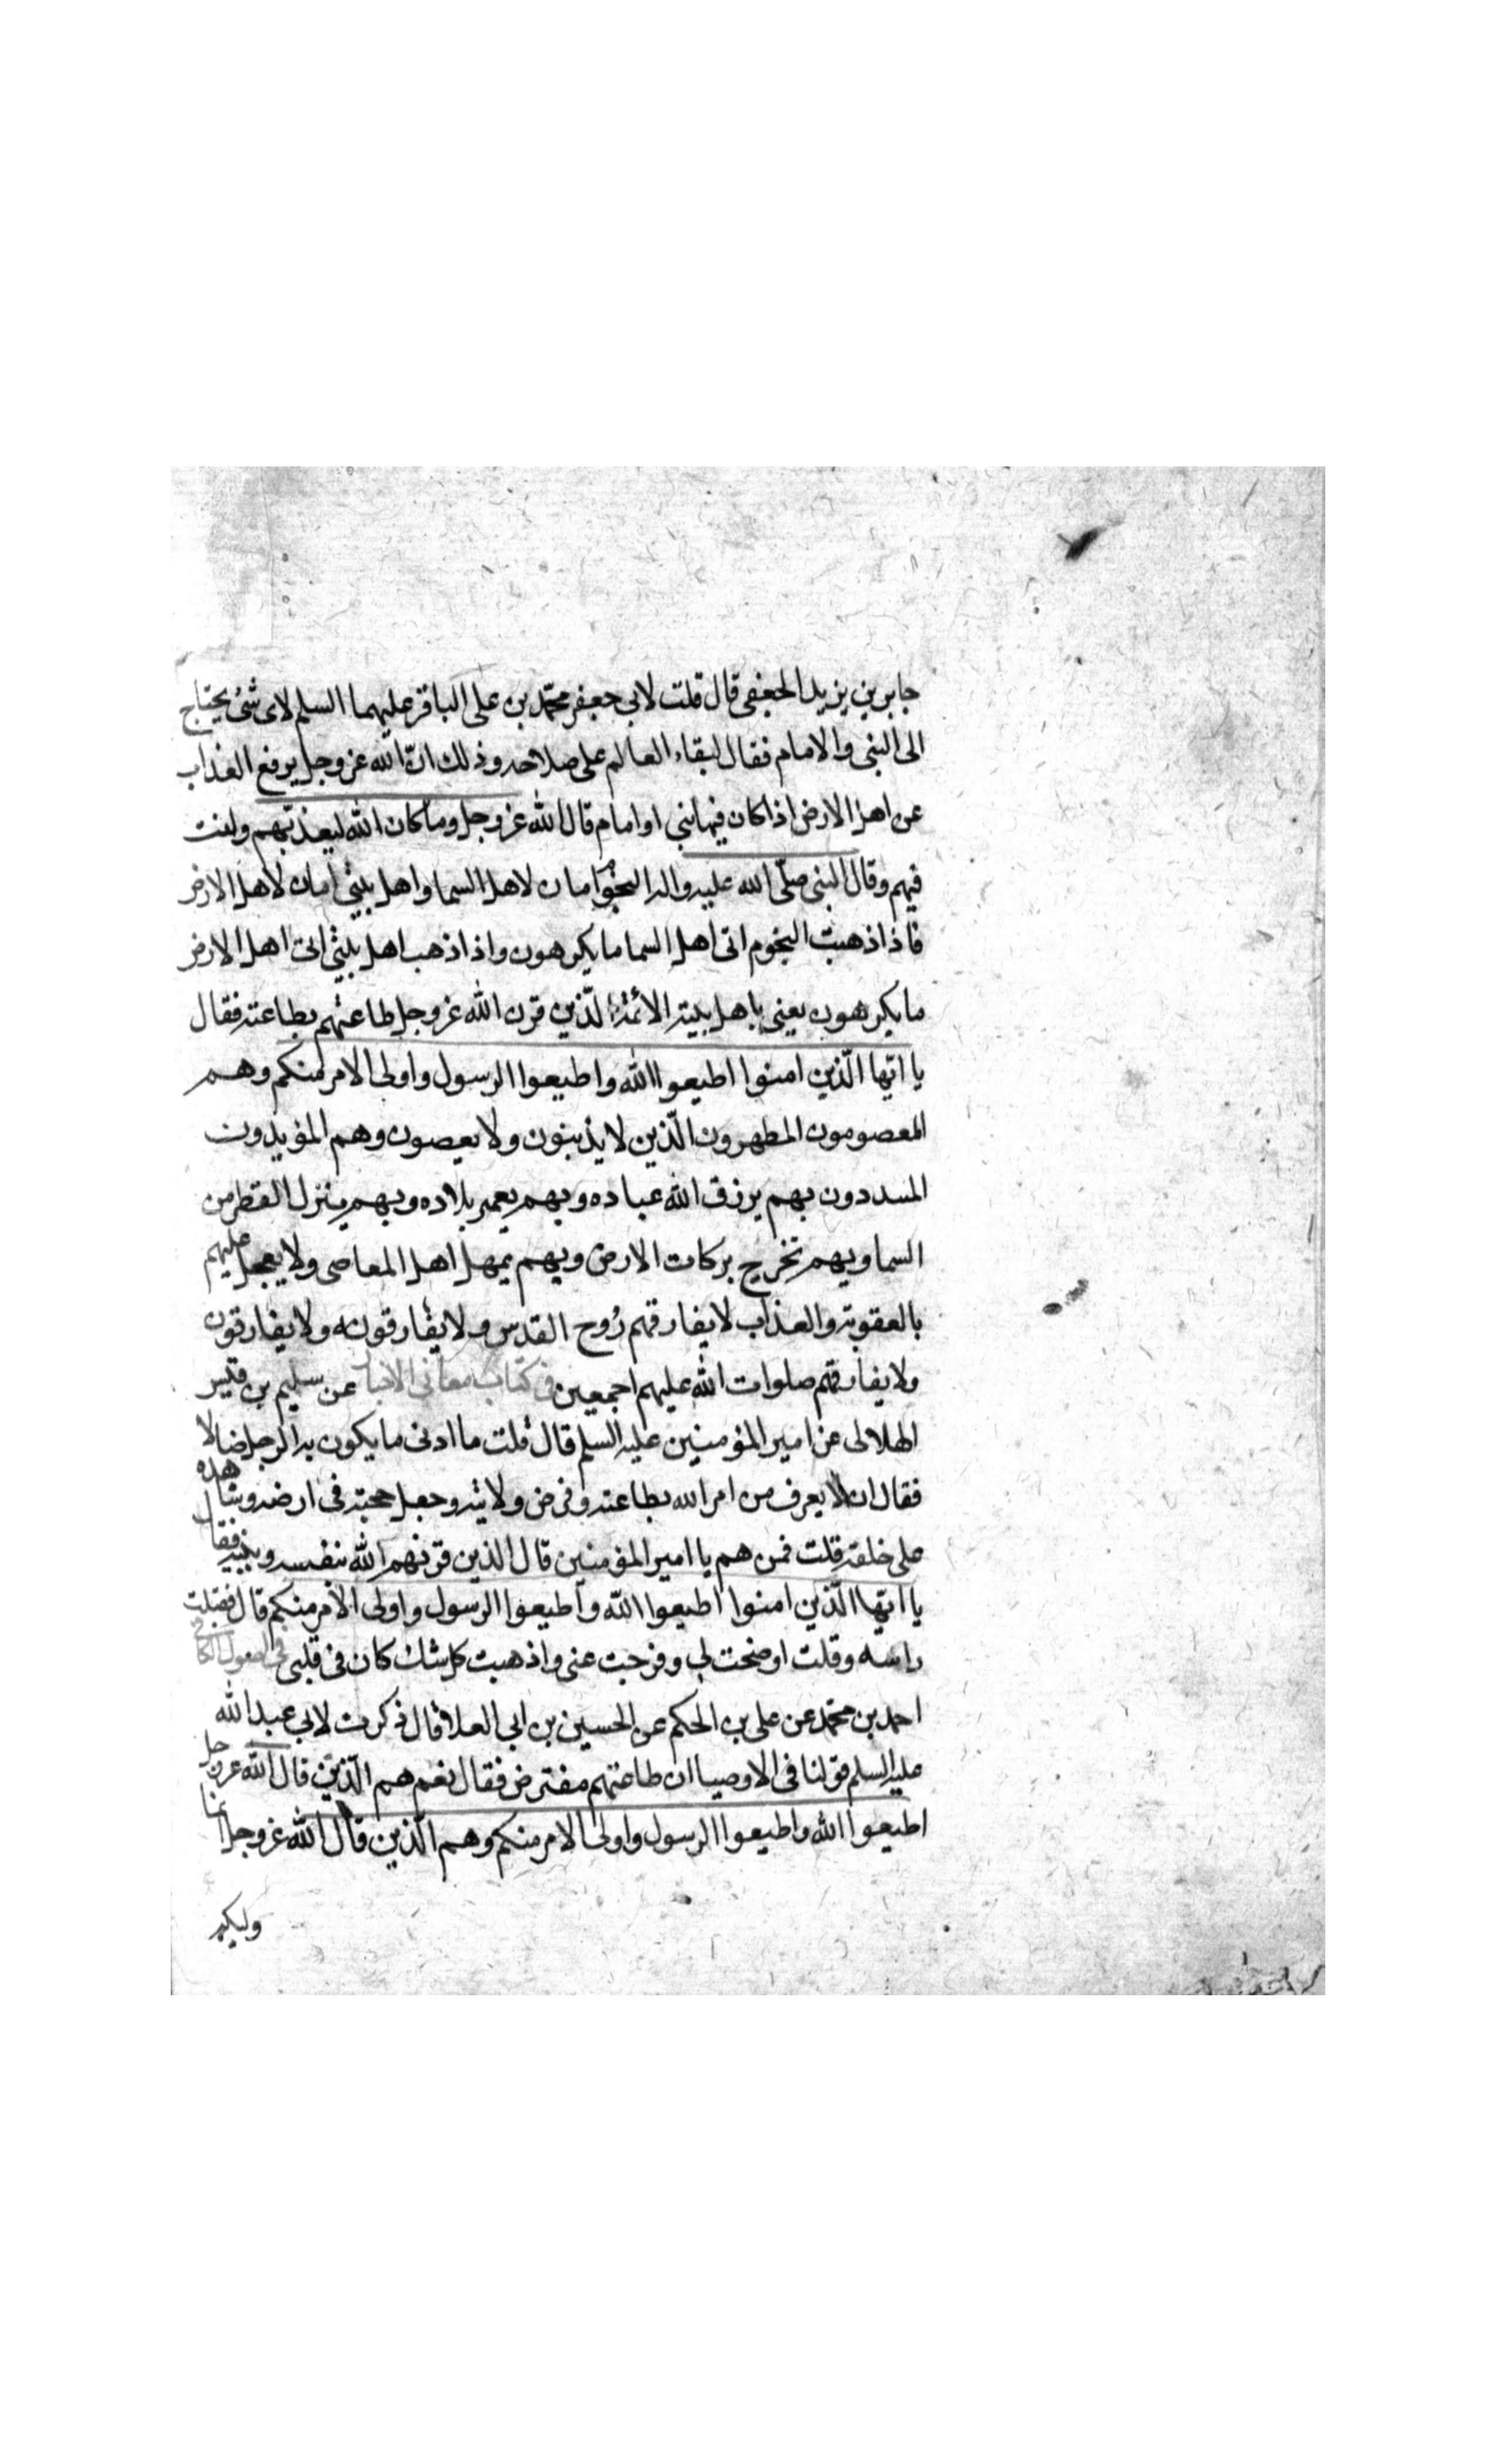 جابر بن يزيد الجعفى قال قلت لابى جعفر محمّد بن على الباقر عليهما السلم لاى شئ يحتاج
الى النبى والامام فقال لبقاء العالم على صلاحه وذلك انّ الله عز وجل يرفع العذاب
عن اهل الارض اذا كان فيها نبى او امام قال الله عز وجل وما كان الله ليعذبهم وانت
فيهم وقال النبى صلّى الله عليه واله النجوم امان لاهل السما واهل بيتى امان لاهل الارض
فاذا ذهبت النجوم اتى اهل السما ما يكرهون واذا ذهب اهل بيتى اتى اهل الارض
ما يكرهون يعنى باهل بيته الائمة الّذين قرن الله عز وجل طاعتهم بطاعته فقال
يا ايّها الّذين امنوا اطيعوا الله واطيعوا الرسول واولى الامر منكم وهم
المعصومون المطهرون الّذين لا يذنبون ولا يعصون وهم المؤيدون
المسددون بهم يرزق الله عباده وبهم يعمر بلاده وبهم ينزل القطر من
السما وبهم تخرج بركات الارض وبهم يمهل اهل المعاصى ولا يعجل عليهم
بالعقوبة والعذاب لا يفارقهم رُوح القدس ولا يفارقونه ولا يفارقون
ولا يفارقهم صلوات الله عليهم اجمعين فى كتاب معانى الاخبار عن سليم بن قيس
الهلالى عن امير المؤمنين عليه السلم قال قلت ما ادنى ما يكون به الرجل ضالا
فقال ان لا يعرف من امر الله بطاعته وفرض ولايته وجعل حجته فى ارضه وشاهده
على خلقه قلت فمن هم يا امير المؤمنين قال الذين قرنهم الله بنفسه وبنبيه فقال
يا ايّها الّذين امنوا اطيعوا الله واطيعوا الرسول واولى الامر منكم قال فقبلت
راسه وقلت اوضحت لى وفرجت عنى واذهبت كل شك كان فى قلبى فى اصول الكافى
احمد بن محمّد عن على بن الحكم عن الحسين بن ابى العلا قال ذكرت لابى عبد الله
عليه السلم قولنا فى الاوصيا ان طاعتهم مفترض فقال نعم هم الّذين قال الله عز وجل
اطيعوا الله واطيعوا الرسول واولى الامر منكم وهم الّذين قال الله عز وجل انما
وليكم